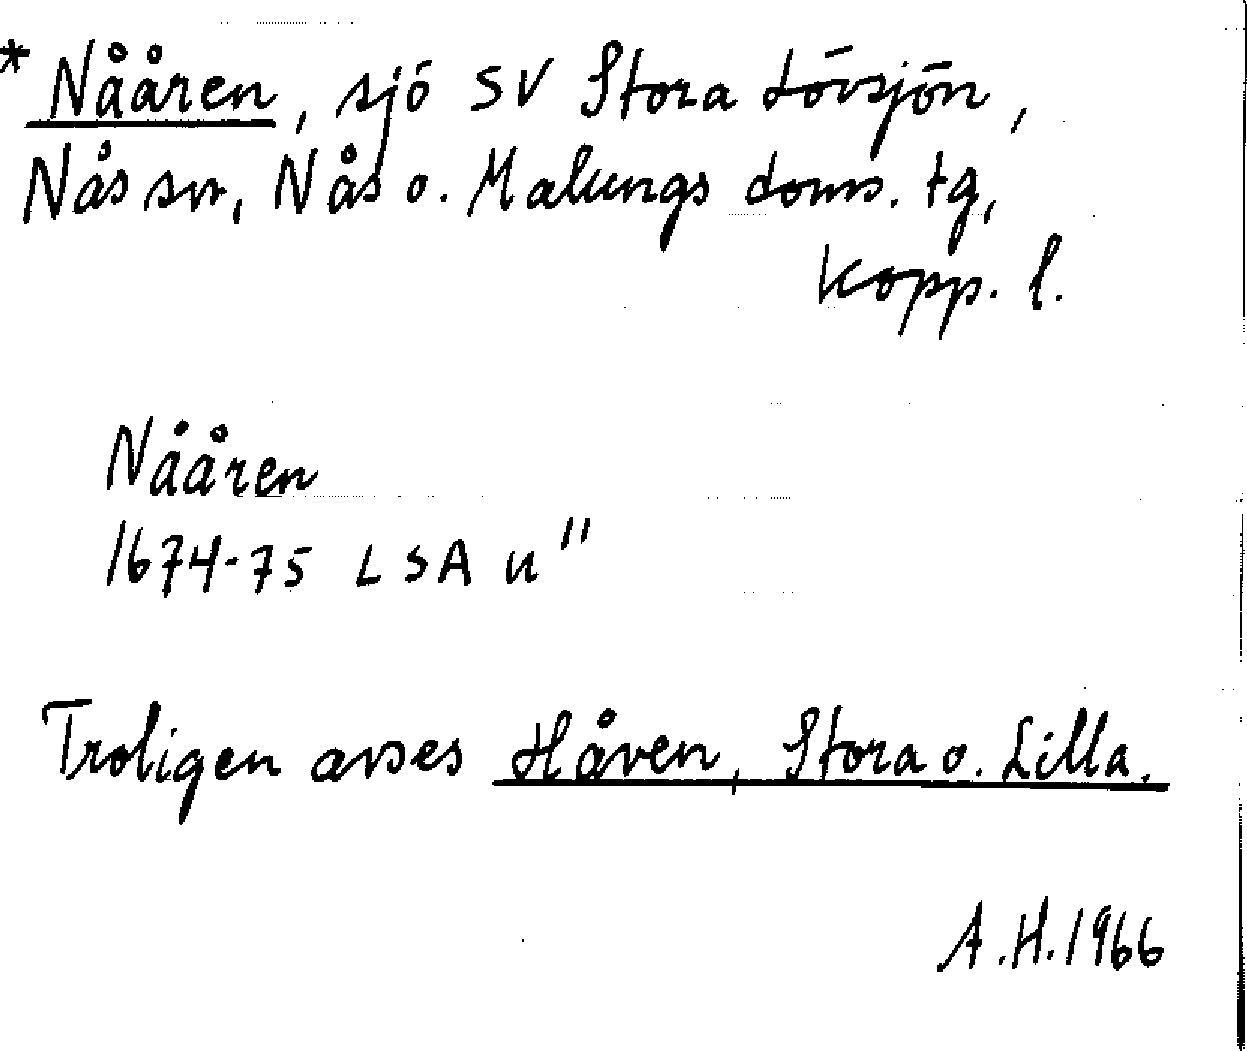 * Nååren, sjö SV Stora Lövsjön,
Nås sn, Nås o. Malungs doms. tg,
Kopp. l.
Nååren
1674-75 LSA u"
Troligen avses Håven, Stora o. Lilla.
A.H. 1966